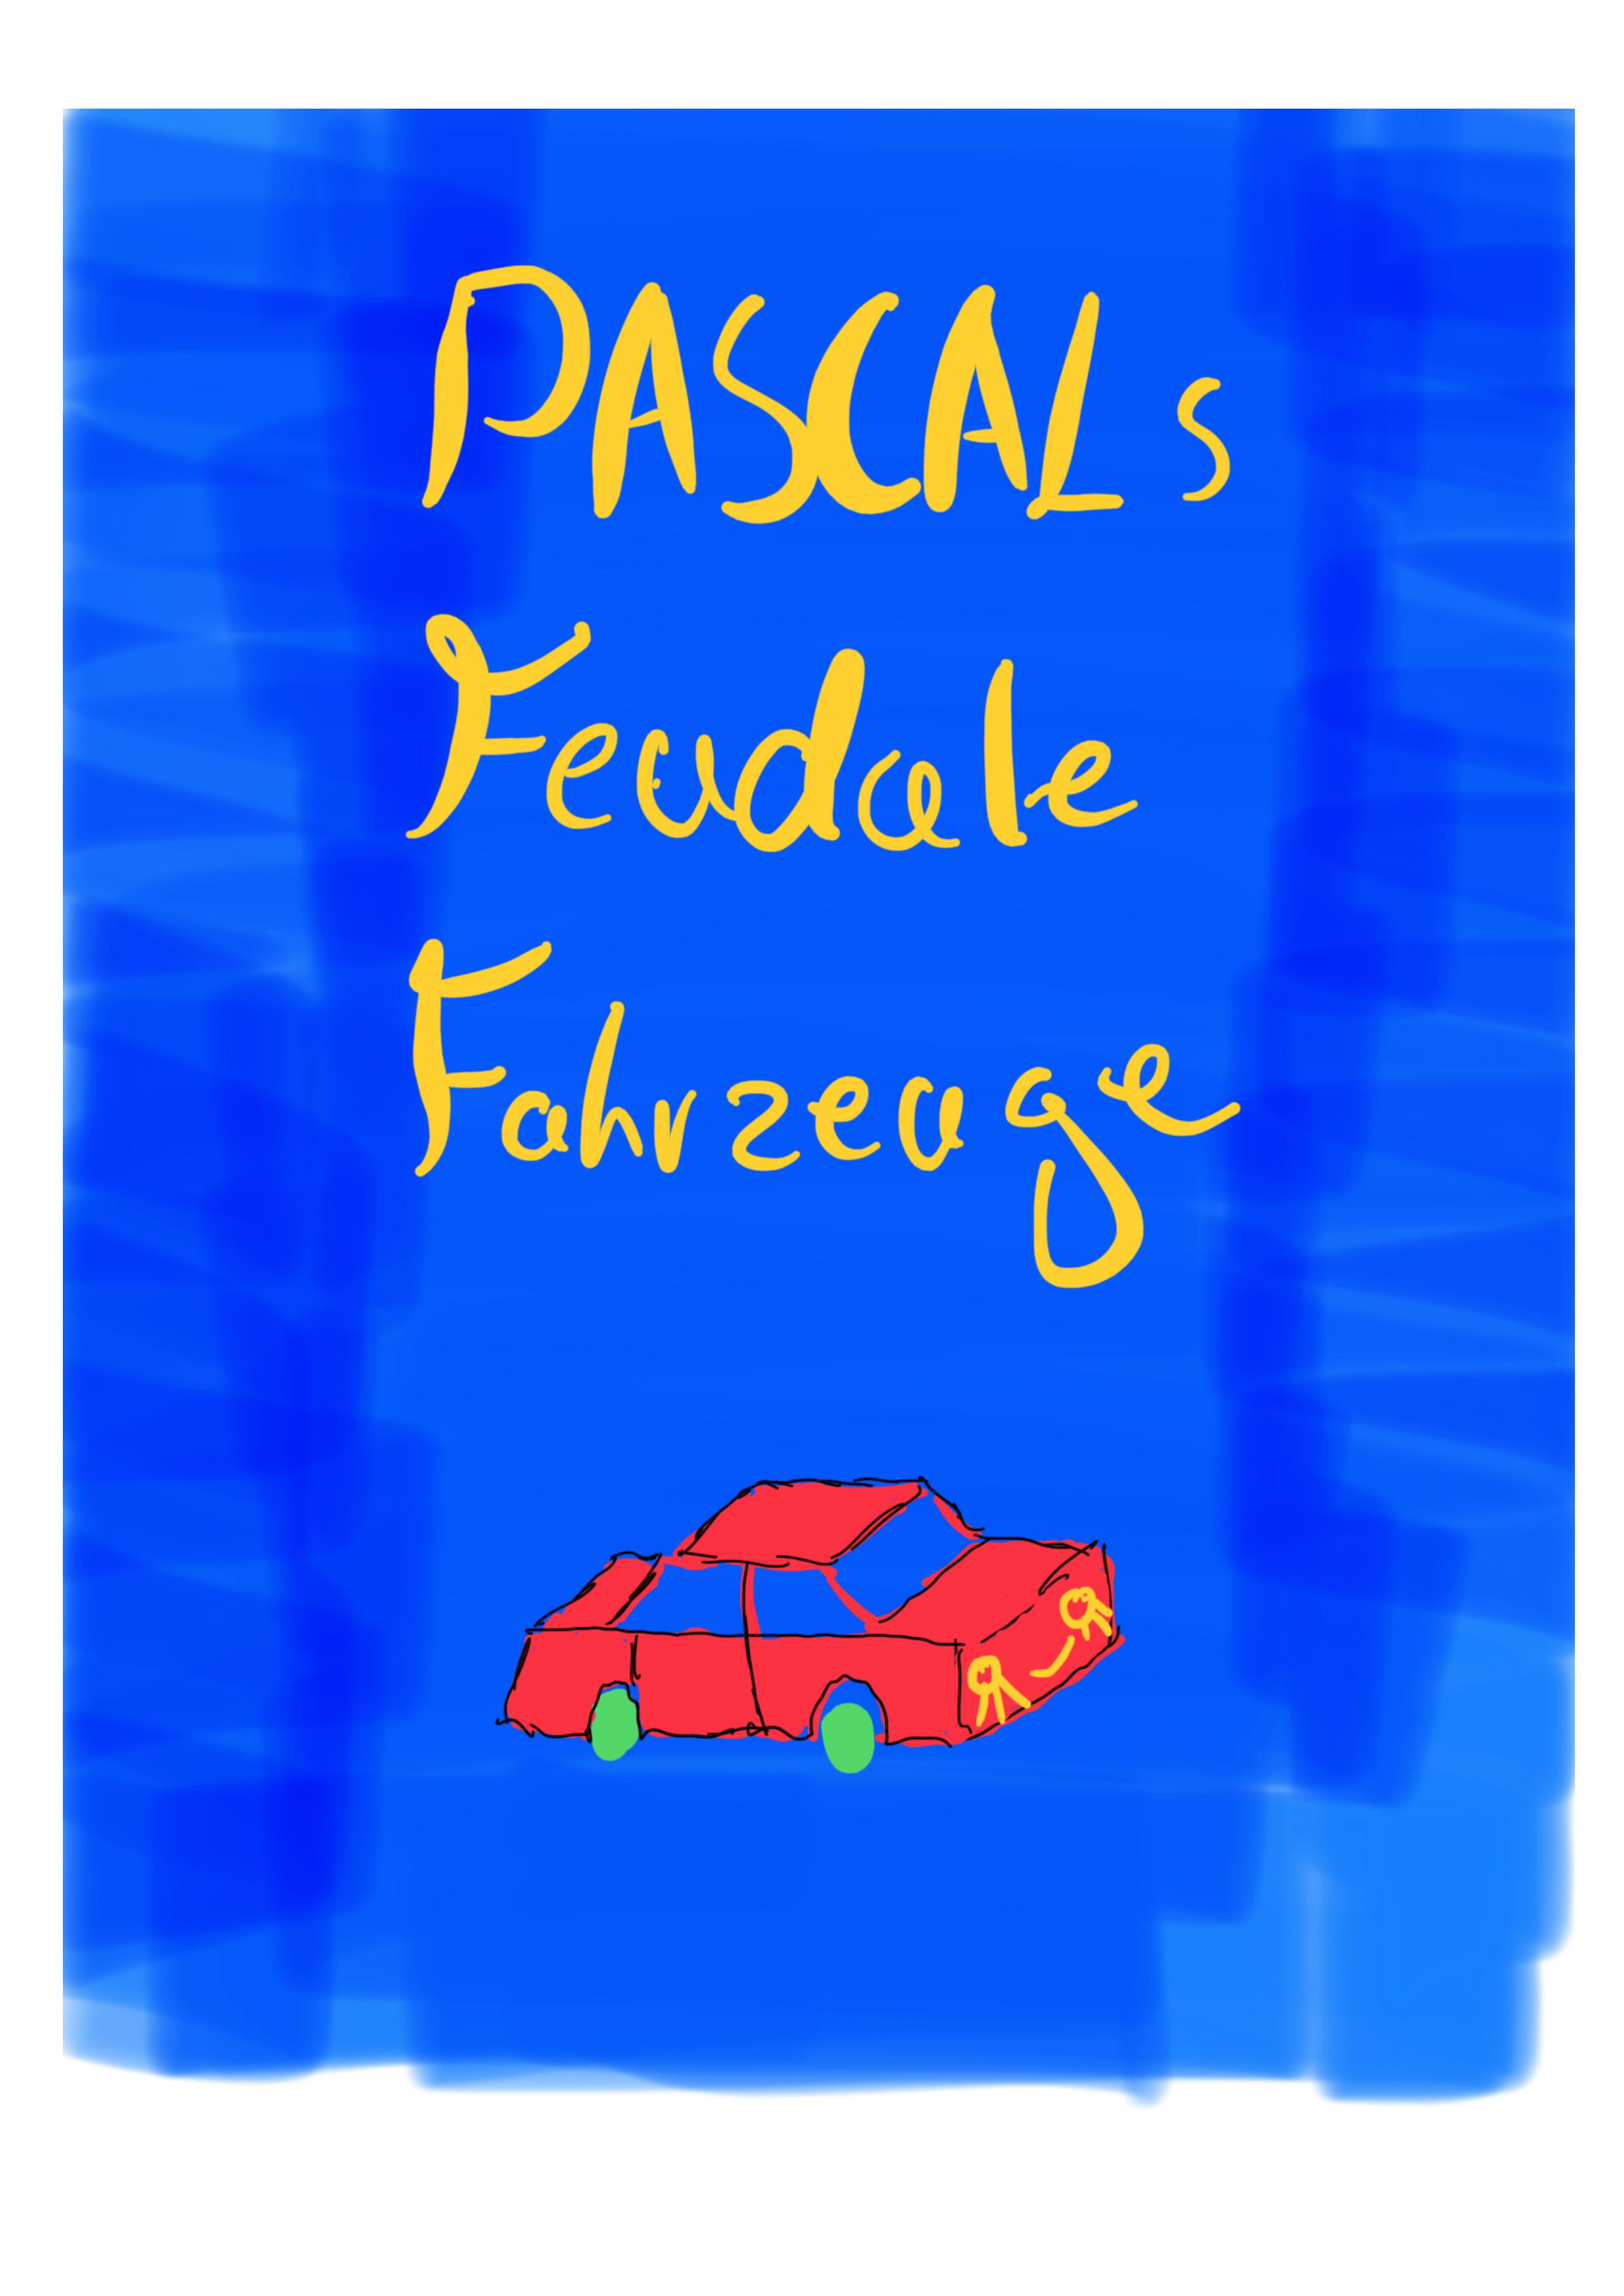 PASCALs
Feudale
Fahrzeuge